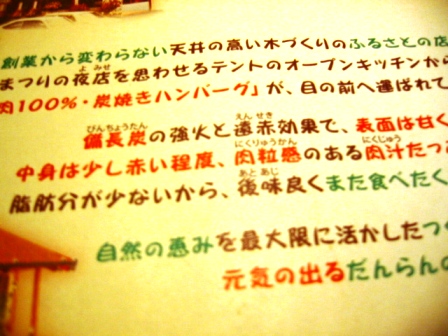 創業から変わらない天井の高い木づくりのふるさとの店
まつりの夜店を思わせるテントのオープンキッチンから
肉100%・炭焼きハンバーグ」が、目の前へ運ばれて
備長炭の強火と遠赤効果で、表面は甘く
中身は少し赤い程度、肉粒感のある肉汁たっ
脂肪分が少ないから、後味良くまた食べたく
自然の恵みを最大限に活かした
元気の出るだんらんの